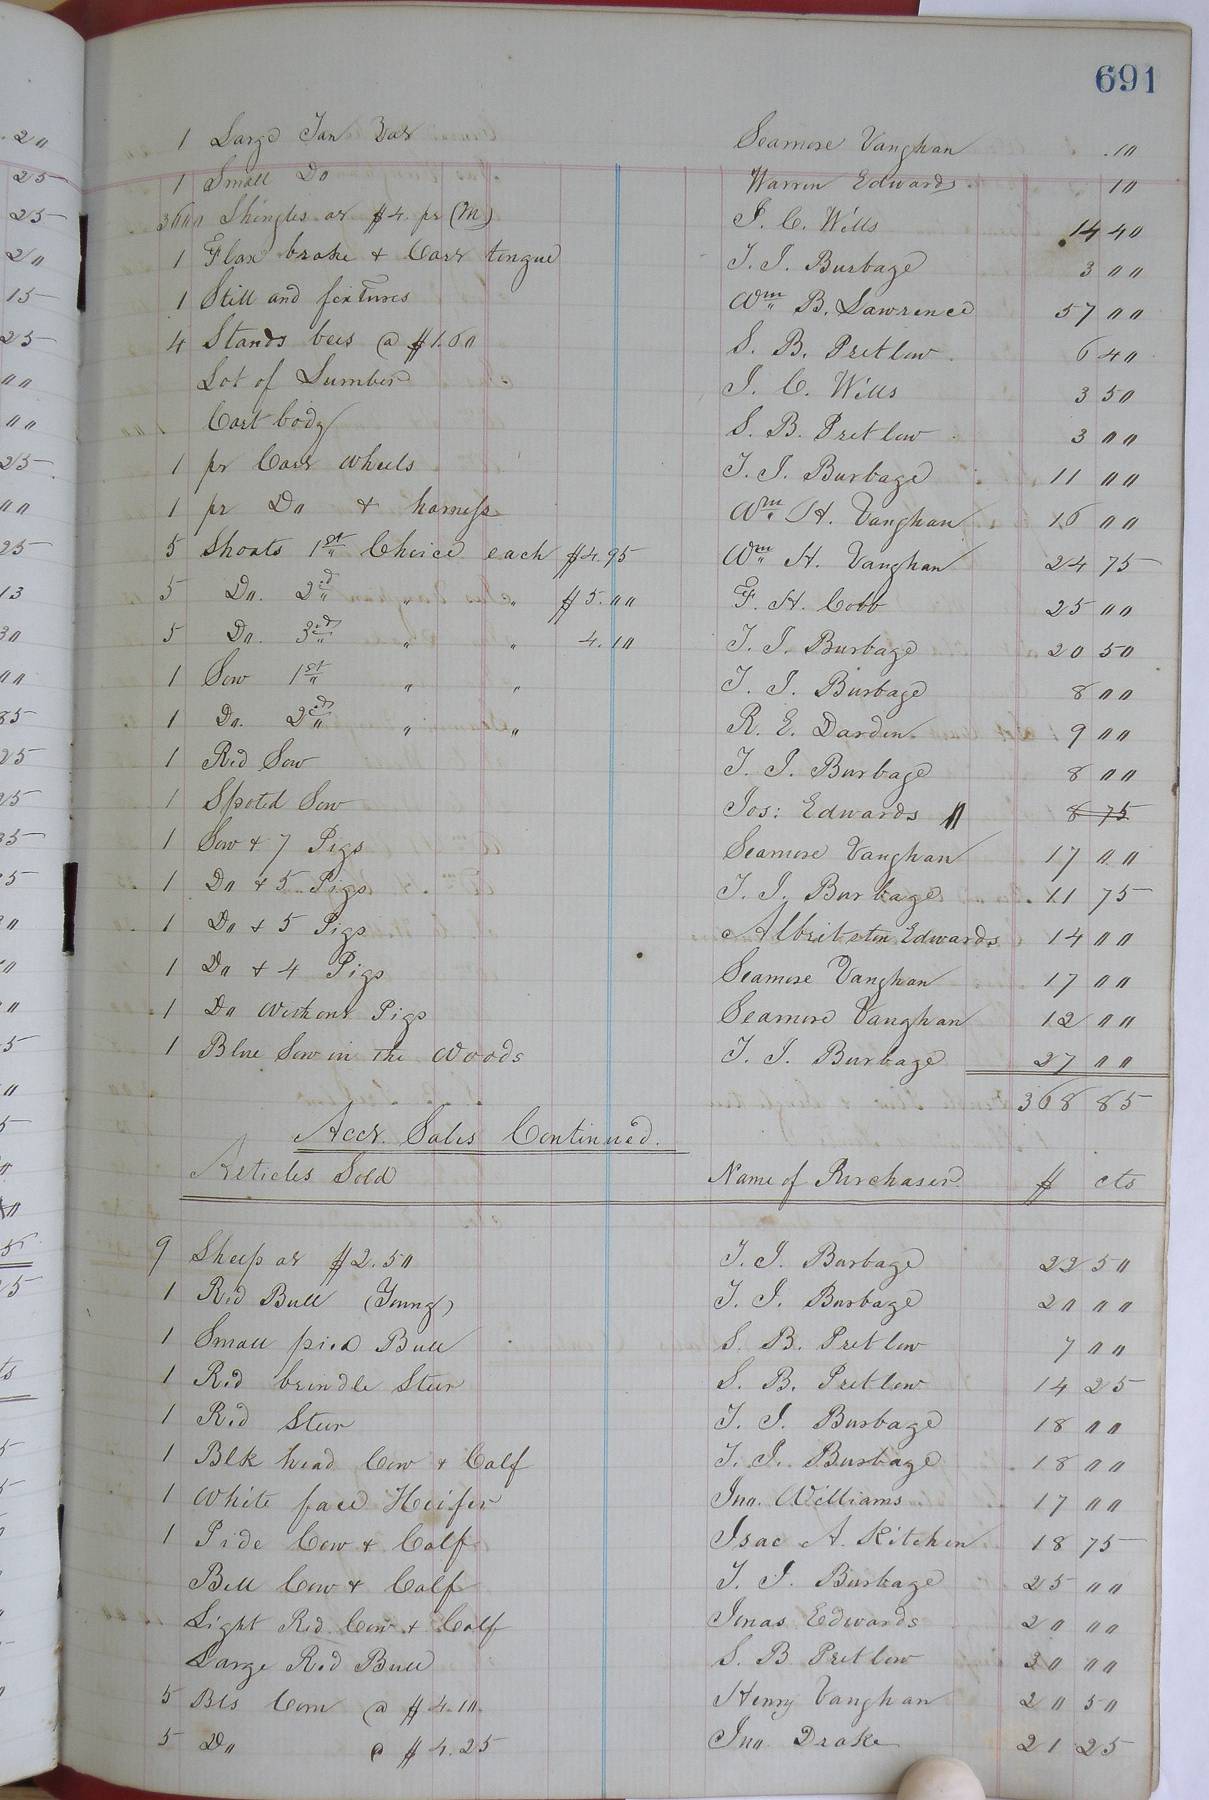 691
1 Large Tan Vat Seamore Vaughan .10
1 Small Do Warren Edwards 10
3600 Shingles at $4. pr (M) J. C. Wills 14 40
1 Flax brake & Cart tongue T. J. Burbage 3 00
1 Still and fixtures Wm B. Lawrence 57 00
4 Stands bees @ $1.60 S. B. Pretlow 6 40
Lot of Lumber J. C. Wills 3 50
Cart body S. B. Pretlow 3 00
1 pr Cart wheels T. J. Burbage 11 00
1 pr Do & harness Wm H. Vaughan 16 00
5 Shoats 1st Choice each $4.95 Wm H. Vaughan 24 75
5 Do. 2nd " " $5.00 F. H. Cobb 25 00
5 Do. 3rd " " 4.10 T. J. Burbage 20 50
1 Sow 1st " " T. J. Burbage 8 00
1 Do. 2nd " " R. E. Darden 9 00
1 Red Sow T. J. Burbage 8 00
1 Spoted Sow Jos: Edwards 8 75
1 Sow & 7 Pigs Seamore Vaughan 17 00
1 Do & 5 Pigs T. J. Burbage 11 75
1 Do & 5 Pigs Albritstin Edwards 14 00
1 Do & 4 Pigs Seamore Vaughan 17 00
1 Do Without Pigs Seamore Vaughan 12 00
1 Blue Sow in the Woods T. J. Burbage 27 00
368 85
Acct. Sales Continued.
Articles Sold Name of Purchaser $ cts
9 Sheep at $2.50 T. J. Burbage 22 50
1 Red Bull (Young) T. J. Burbage 20 00
1 Small pied Bull S. B. Pretlow 7 00
1 Red brindle Steer S. B. Pretlow 14 25
1 Red Steer T. J. Burbage 18 00
1 Blk head Cow & Calf T. J. Burbage 18 00
1 White face Heifer Jno. Williams 17 00
1 Pide Cow & Calf Isac A. Kitchen 18 75
Bell Cow & Calf T. J. Burbage 25 00
Light Red Cow & Calf Jonas Edwards 20 00
Large Red Bull S. B Pretlow 30 00
5 Bls Corn @ $4.10. Henry Vaughan 20 50
5 Do @ $4.25 Jno Drake 21 25